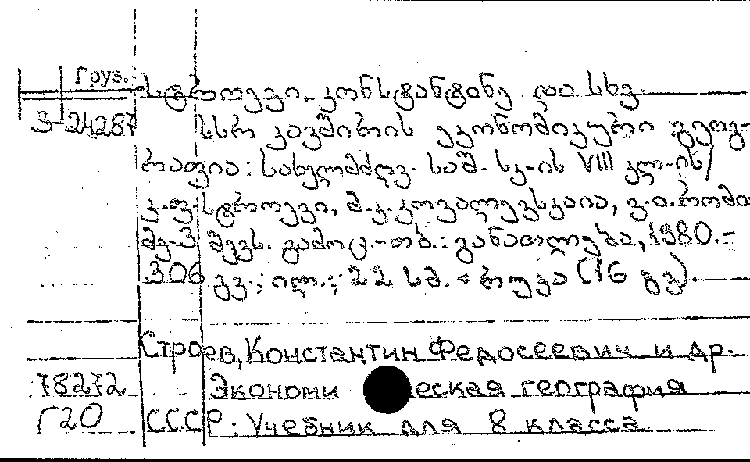 Груз.
სტროევი, კონსტანტინე და სხვ.
3-24287 სსრ კავშირის ეკონომიკური გეოგ-
რაფია: სახელმძღვ. საშ. სკ-ის VIII კლ-ის/
კ.ფ. სტროევი, მ.კ. კოვალევსკაია,
მე-3 შევს. გამოც.-თბ.: განათლება, 1980.-
306 გვ.; ილ.; 22 სმ. + რუკა (16 გვ)
Строев, Константин Федосеевич и др.
78272 Экономи ческая география
Г20 СССР: Учебник для 8 класса